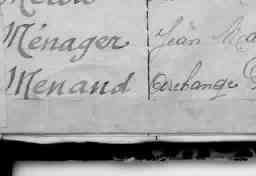 Ménager Jean
Menaud Archange